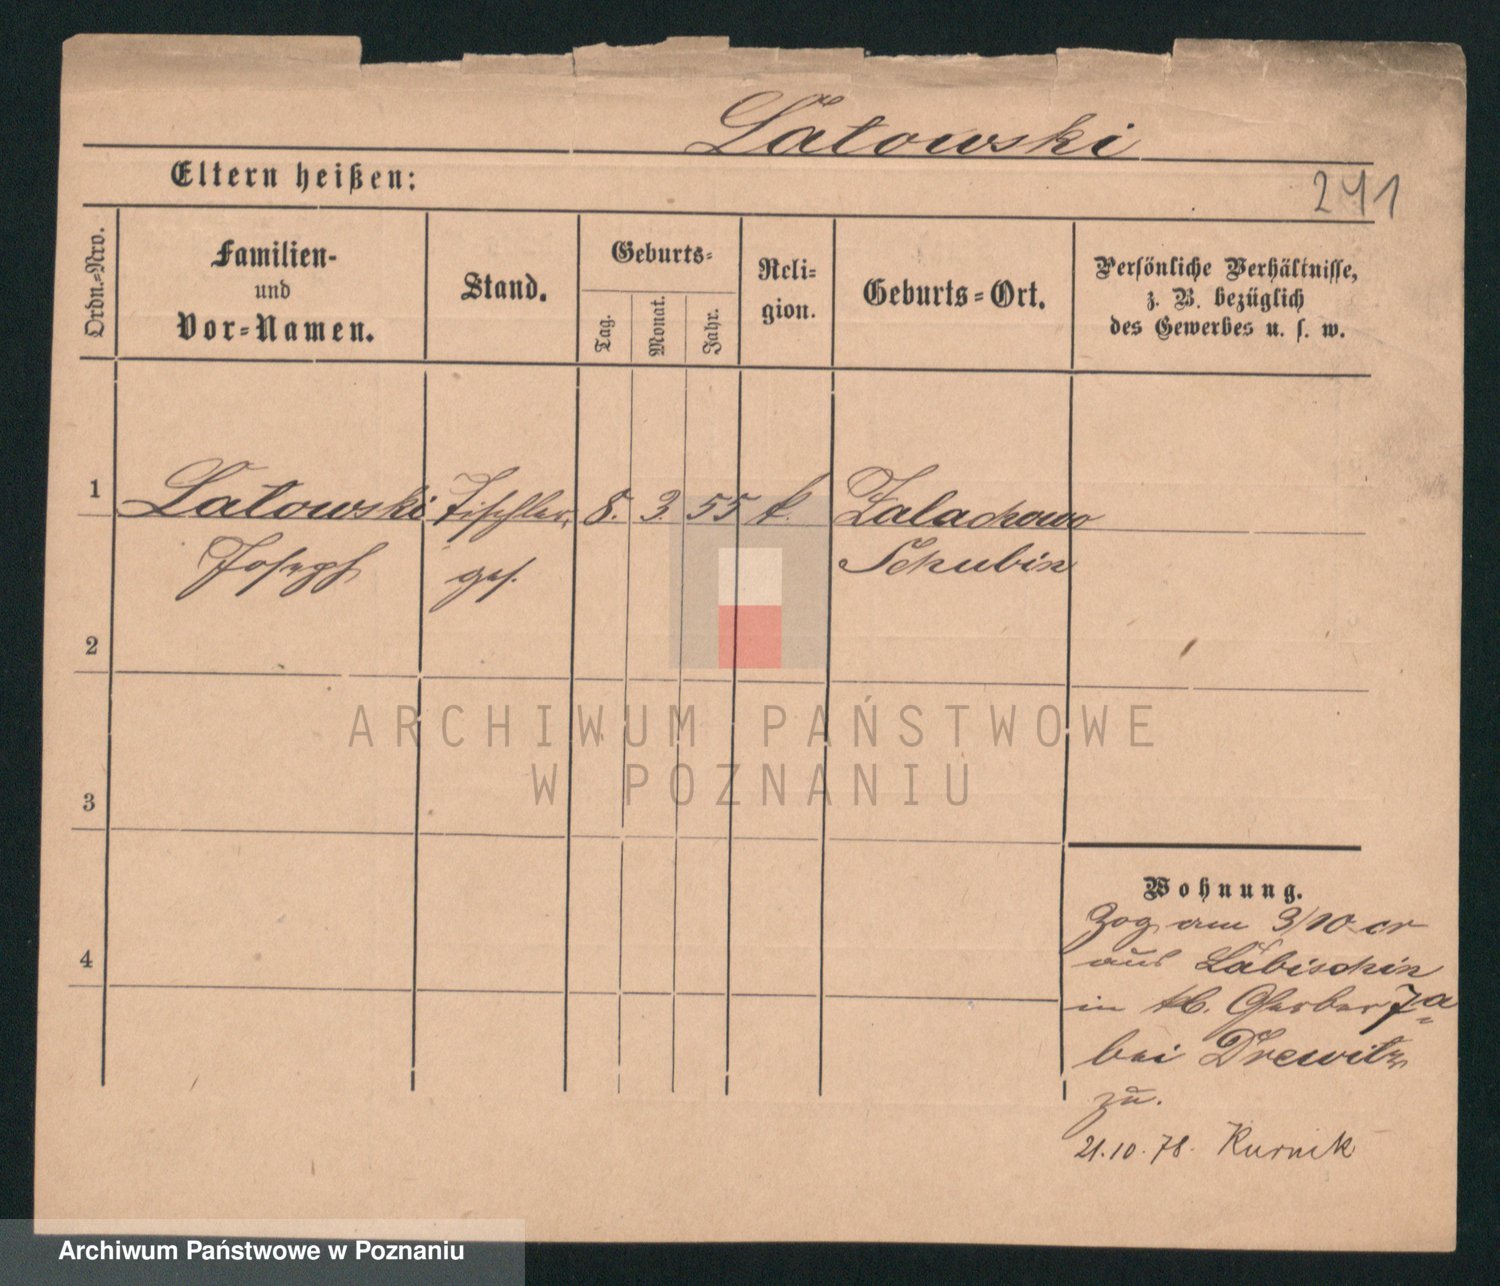 Latowski
Eltern heißen:
241
Ordn.-Nro.
Familien-
und
Vor-Namen.
Stand.
Geburts-
Tag.
Monat.
Jahr.
Reli-
gion.
Geburts-Ort.
Persönliche Verhältnisse,
z. B. bezüglich
des Gewerbes u. s. w.
1 Latowski Tischler 8. 3. 55 k. Zalachowo
Joseph ges. Schubin
2
3
4
Wohnung.
Zog am 3/10 cr
aus Labischin
in kl. Gerber 7a
bei Drewitz
zu.
21.10.78. Kurnik
ARCHIWUM PAŃSTWOWE
W POZNANIU
Archiwum Państwowe w Poznaniu